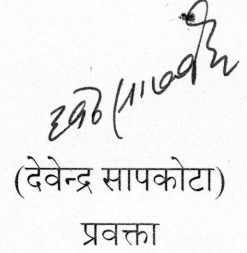 (देवेन्द्र सापकोटा)
प्रवक्ता